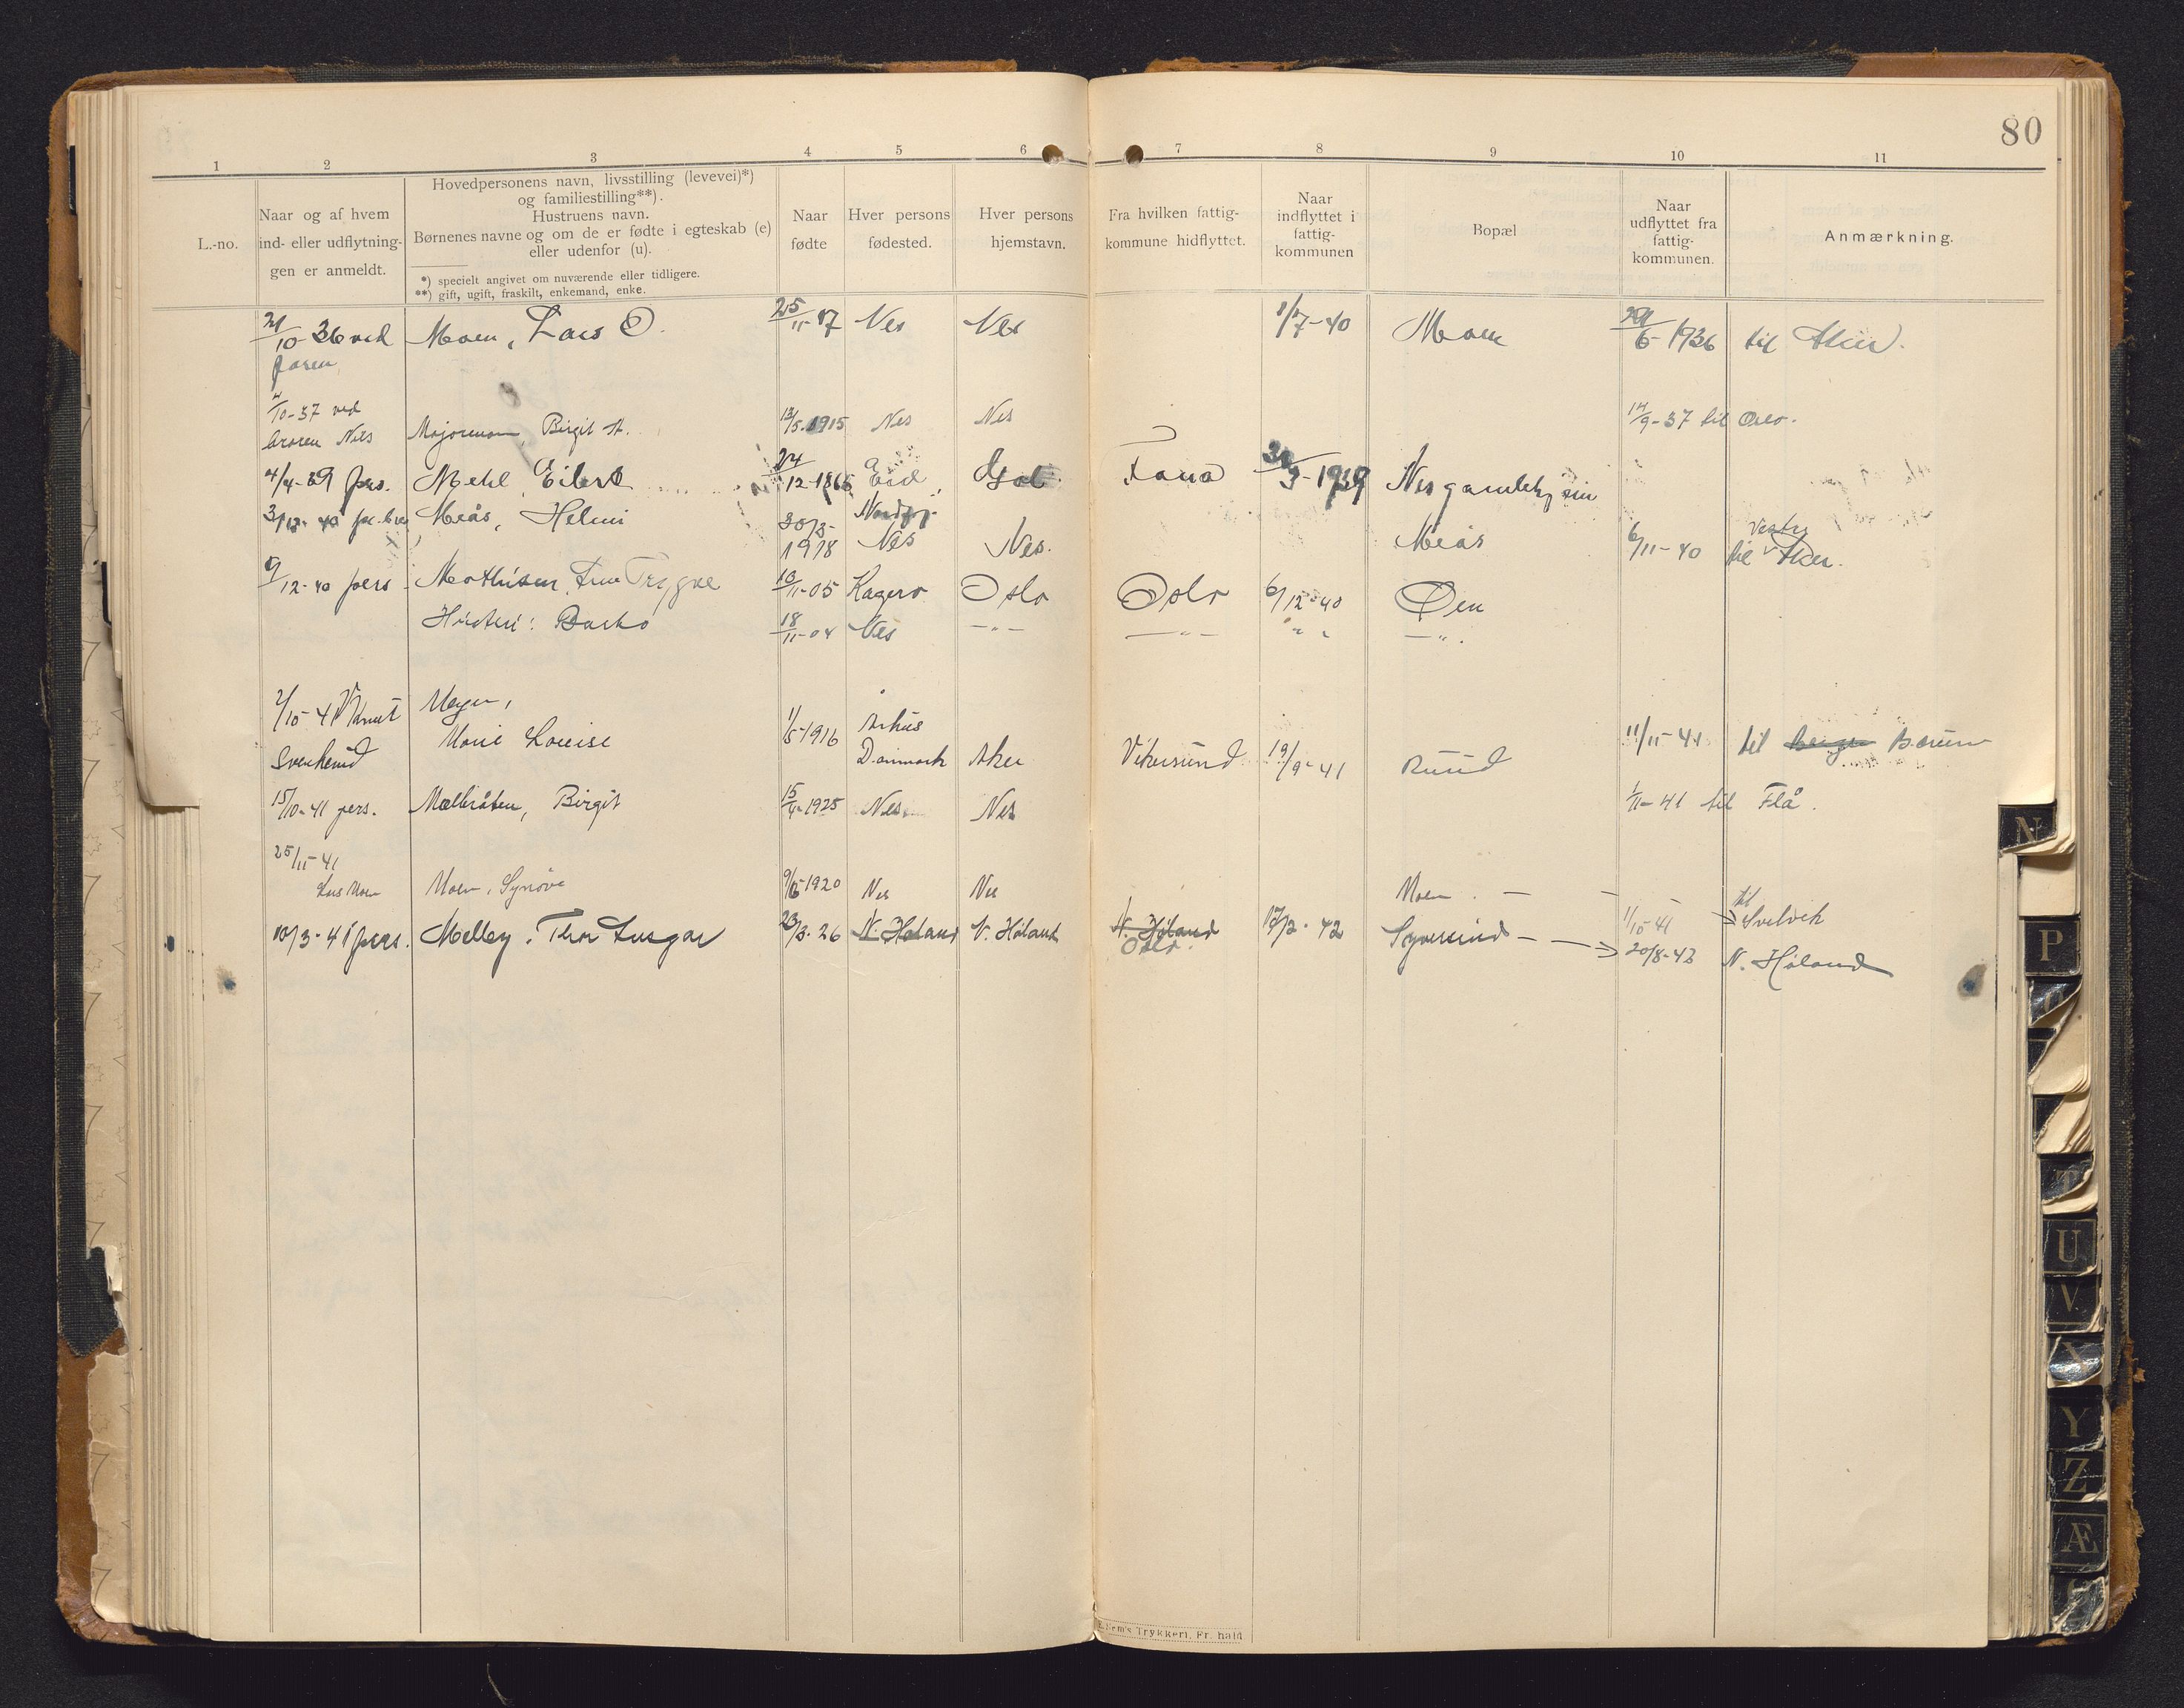 80
1 2 3 4 5 6 7 8 9 10 11
L.-no.
Naar og af hvem ind- eller udflytningen er anmeldt.
Hovedpersonens navn, livsstilling (levevei)*)
og familiestilling**).
Hustruens navn.
Børnenes navne og om de er fødte i egteskab (e)
eller udenfor (u).
*) specielt angivet om nuværende eller tidligere.
**) gift, ugift, fraskilt, enkemand, enke.
Naar fødte
Hver persons fødested.
Hver persons hjemstavn.
Fra hvilken fattig-kommune hidflyttet.
Naar indflyttet i fattig-kommunen
Bopæl
Naar udflyttet fra fattig-kommunen.
Anmærkning.
21/10-36 ved Moen, Lars O. 25/11-17 Nes Nes 1/7-40 Moen 29/6-1936 til Aker.
faren
4/10-37 ved
Nils Birgit A. 13/5-1915 Nes Nes 14/9-37 til Oslo.
4/4-39 pers. Mehl, Eilert 24/12-1865 Eid, Gol Fana 3-1939 Nes gamlehj
Nordfj.
Meås, Helmi 30/3- Nes Nes. Meås 6/11-40 til Vestre Aker.
1918
6/12-40 pers. Mathisen, Trygve 10/11-05 Kragerø Oslo Oslo 6/12-40 Øen
Hustru: 18/11-04 Nes -"- -"- " " -"-
2/10-41 Knut Meyer,
Svenkerud Marie Louise 1/5-1916 Århus
Danmark Aker Vikersund 19/9-41 Ruud 11/11-41 til Bergen Bærum
15/10-41 pers. Mælbråten, Birgit 15/4-1925 Nes Nes 1/11-41 til Flå.
25/11-41
Lars Moen Moen, Synøve 1920 Nes Nes Moen. 1/10-41 til Svelvik
10/3-41 pers. Melleby, Thor 23/3-26 N. Høland N. Høland N. Høland 42 20/8-43 N. Høland
Oslo.
E. Sem's Trykkeri, Fr.hald
N
P
T
U
V
X
Y
Z
Æ